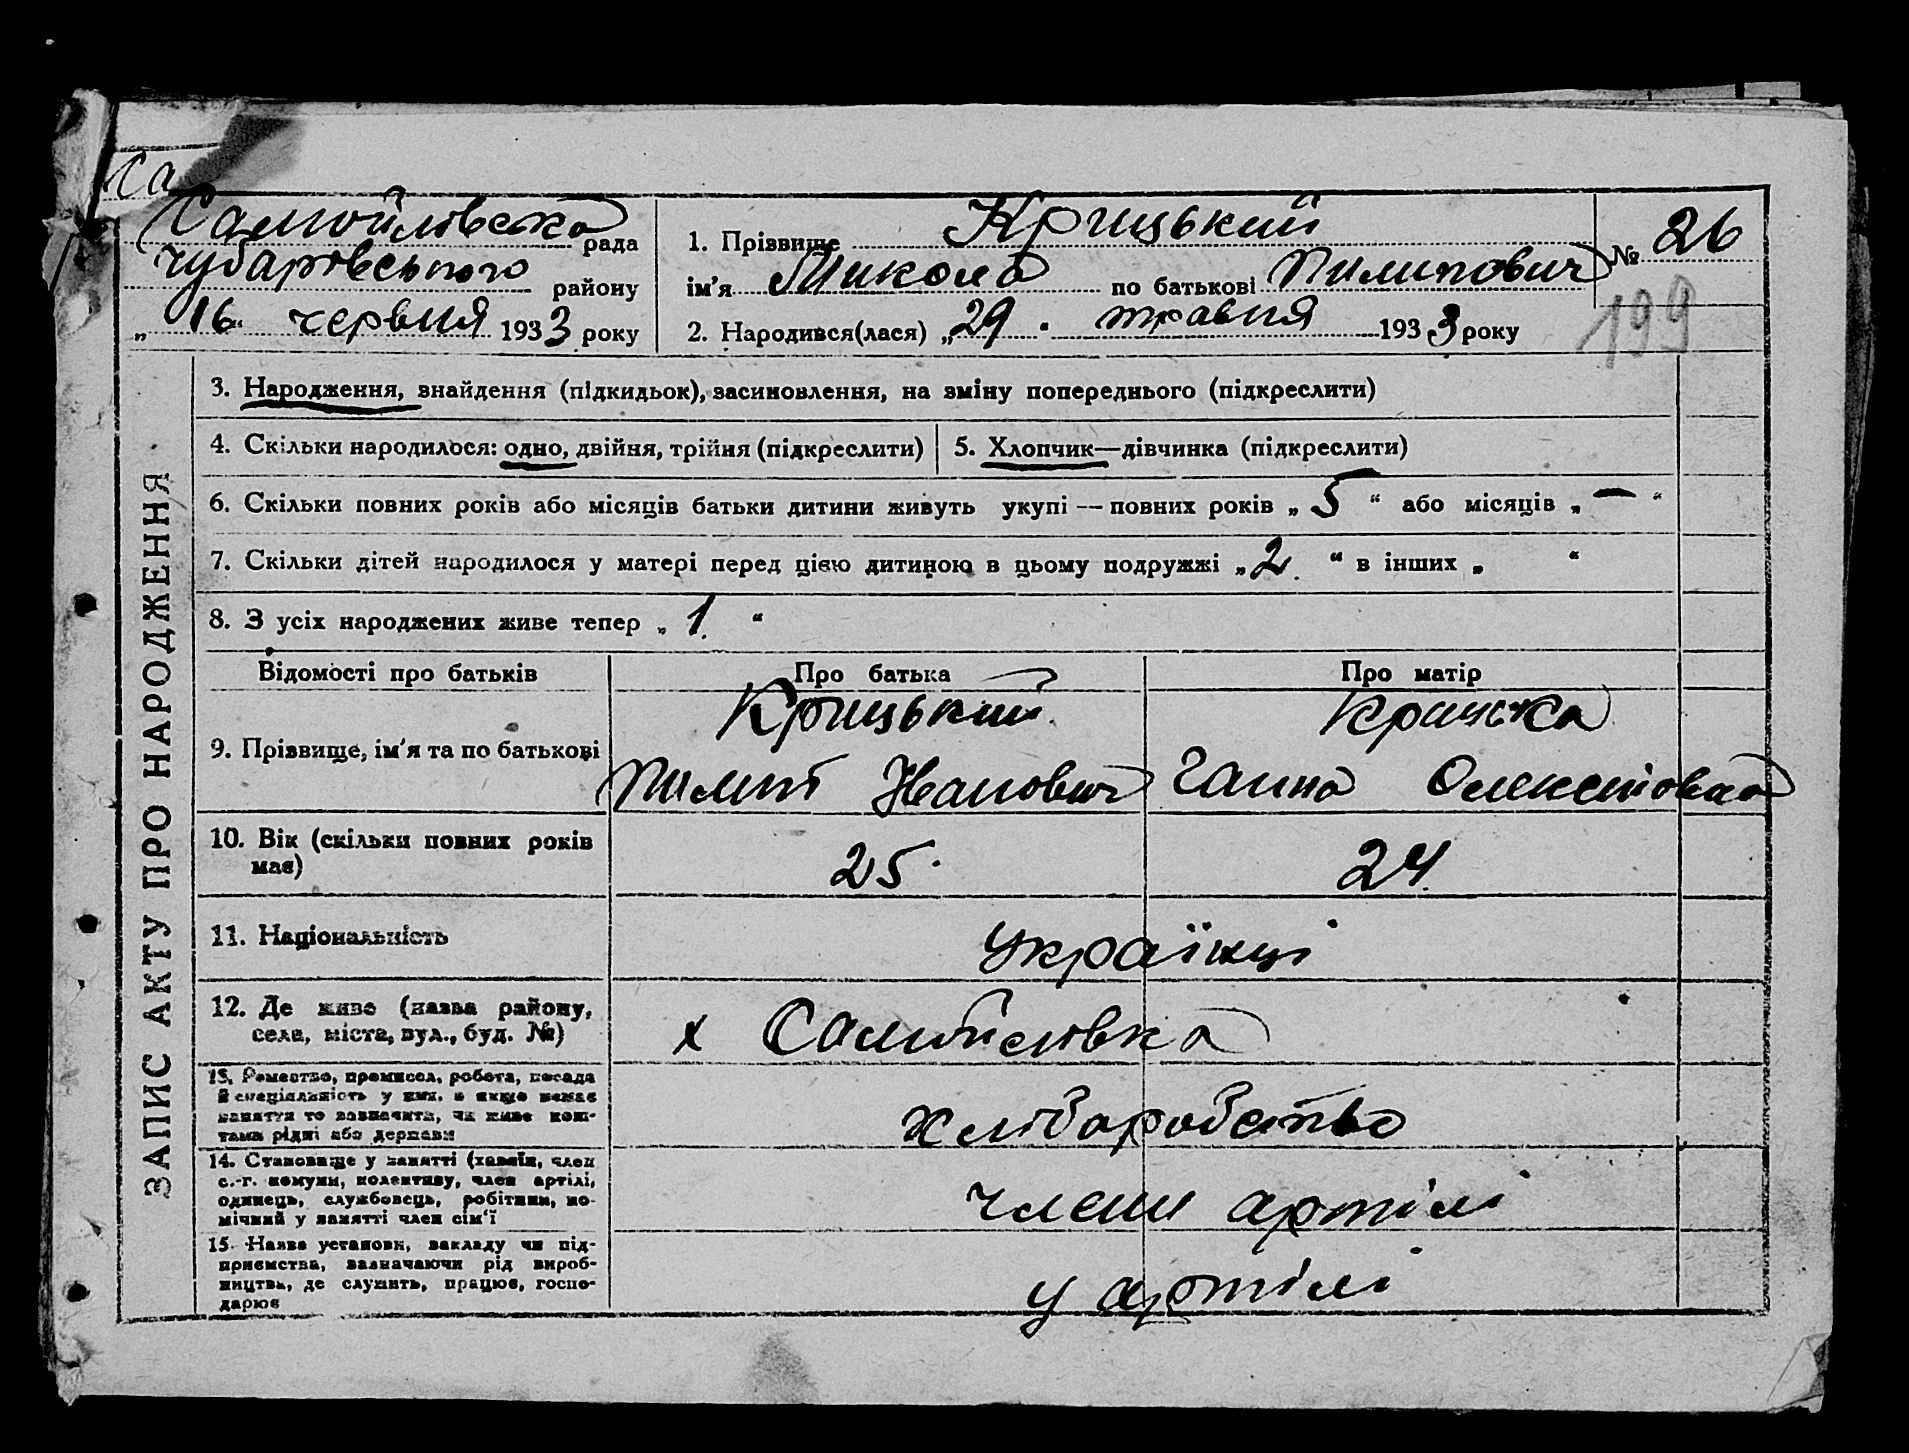 Са
Самойлівська рада
Чубарівського району
„16“ червня 1933 року
1. Прізвище Крицький
ім'я Микола по батькові Пилипович
2. Народився(лася) „29. травня 1933 року
№ 26
199
ЗАПИС АКТУ ПРО НАРОДЖЕННЯ
3. Народження, знайдення (підкидьок), засиновлення, на зміну попереднього (підкреслити)
4. Скільки народилося: одно, двійня, трійня (підкреслити)
5. Хлопчик—дівчинка (підкреслити)
6. Скільки повних років або місяців батьки дитини живуть укупі — повних років „ 5 “ або місяців „ — “
7. Скільки дітей народилося у матері перед цією дитиною в цьому подружжі „ 2. “ в інших „ “
8. З усіх народжених живе тепер „ 1. “
Відомості про батьків Про батька Про матір
9. Прізвище, ім'я та по батькові
Крицький Крицька
Пилип Іванович Ганна
10. Вік (скільки повних років
має)
25. 24.
11. Національність
Українці
12. Де живе (назва району,
села, міста, вул., буд. №)
х Самойлівка
13. Ремество, промисел, робота, посада
й спеціяльність у них, а якщо немає
заняття то зазначити, чи живе кош-
тами рідні або держави
хліборобство
14. Становище у занятті (хазяїн, член
с.-г. комуни, колективу, член артілі,
одинець, службовець, робітник, по-
мічний у занятті член сім'ї
члени артілі
15. Назва установи, закладу чи під-
приємства, зазначаючи рід вироб-
ництва, де служить, працює, госпо-
дарює
у артілі